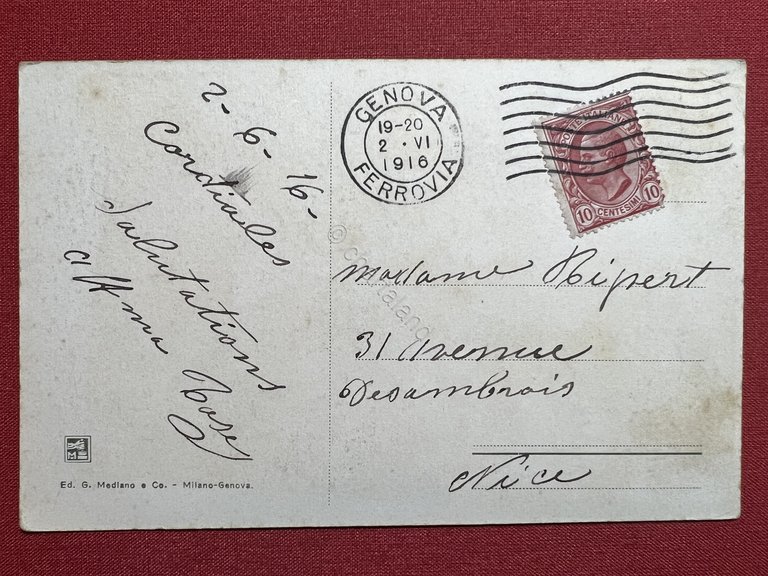 2-6-16-
Cordiales
Salutations
Rose
Ed. G. Mediano e Co. - Milano-Genova.
GENOVA
19-20
2 · VI
1916
FERROVIA
POSTE ITALIANE
10 CENTESIMI 10
Madame Hipert
31 Avenue
Desambrois
Nice